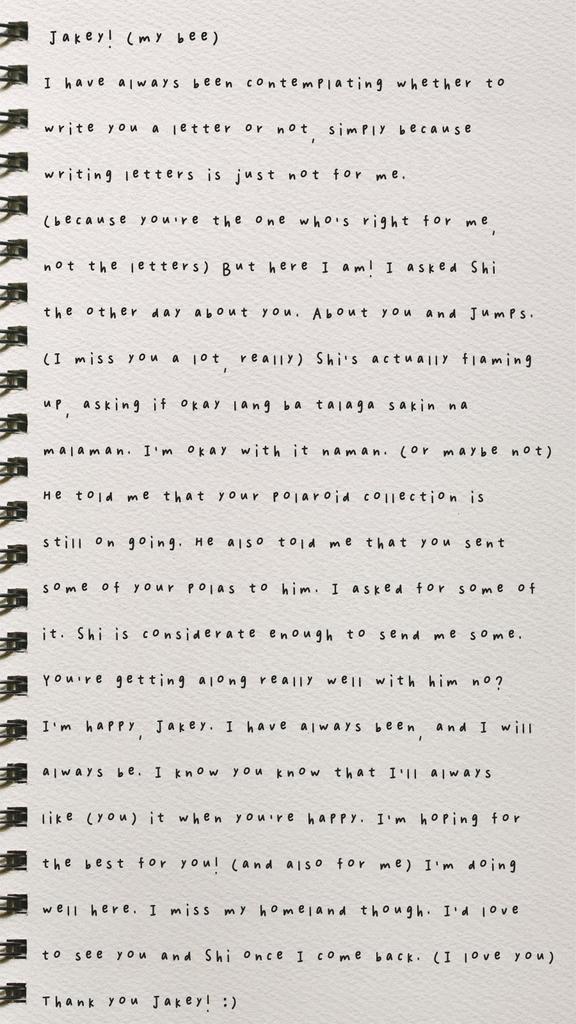 Jakey! (my bee)
I have always been contemplating whether to
write you a letter or not, simply because
writing letters is just not for me.
(because you're the one who's right for me,
not the letters) But here I am! I asked Shi
the other day about you. About you and Jumps.
(I miss you a lot, really) Shi's actually flaming
up, asking if okay lang ba talaga sakin na
malaman. I'm okay with it naman. (or maybe not)
He told me that your polaroid collection is
still on going. He also told me that you sent
some of your polas to him. I asked for some of
it. Shi is considerate enough to send me some.
You're getting along really well with him no?
I'm happy, Jakey. I have always been, and I will
always be. I know you know that I'll always
like (you) it when you're happy. I'm hoping for
the best for you! (and also for me) I'm doing
well here. I miss my homeland though. I'd love
to see you and Shi once I come back. (I love you)
Thank you Jakey! :)